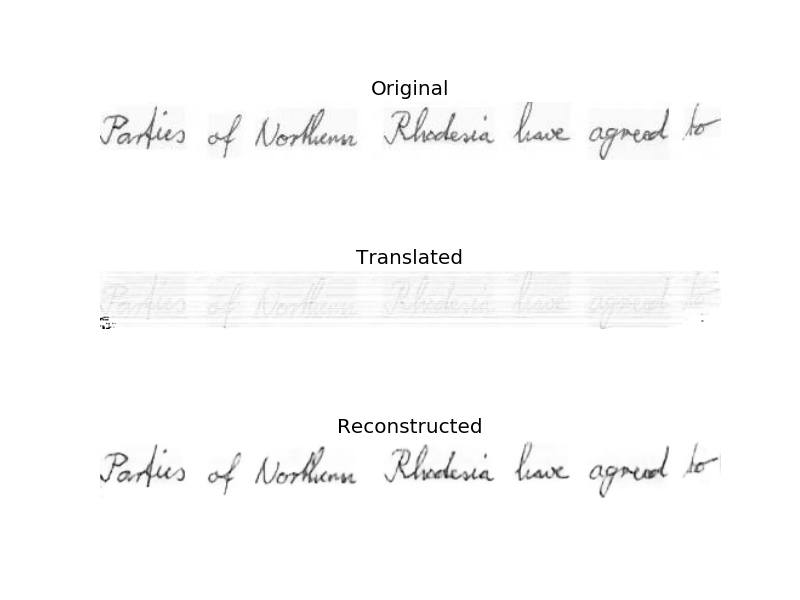 Original
Parties of Northern Rhodesia have agreed to
Translated
Parties of Northern Rhodesia have agreed to
Reconstructed
Parties of Northern Rhodesia have agreed to